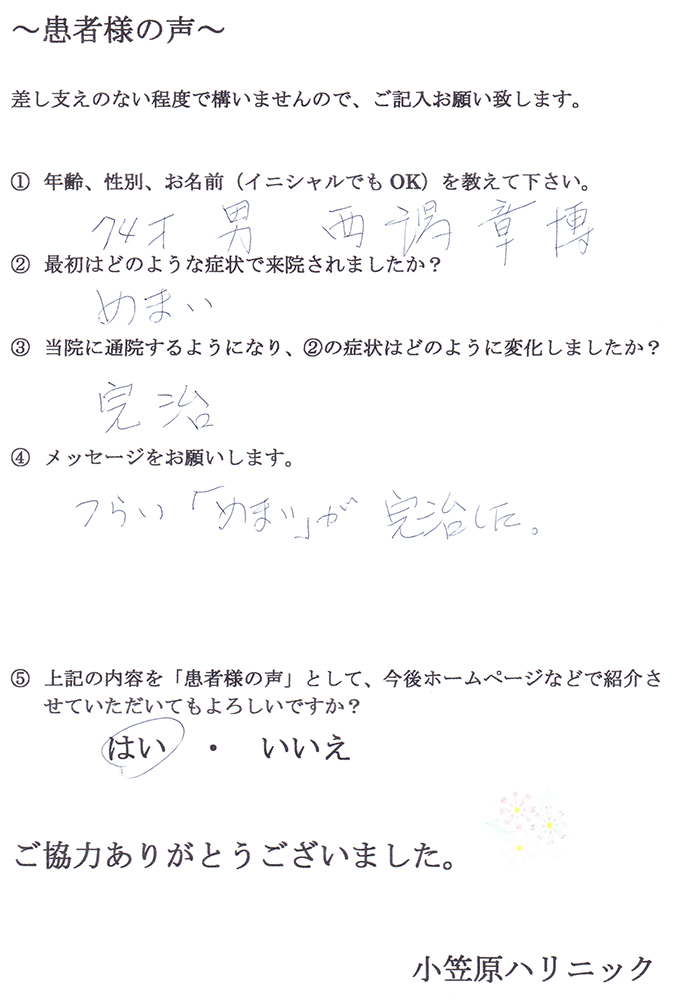 ～患者様の声～
差し支えのない程度で構いませんので、ご記入お願い致します。
① 年齢、性別、お名前（イニシャルでも OK）を教えて下さい。
74才 男 西 章博
② 最初はどのような症状で来院されましたか？
めまい
③ 当院に通院するようになり、②の症状はどのように変化しましたか？
完治
④ メッセージをお願いします。
つらい「めまい」が 完治した。
⑤ 上記の内容を「患者様の声」として、今後ホームページなどで紹介さ
せていただいてもよろしいですか？
はい ・ いいえ
ご協力ありがとうございました。
小笠原ハリニック